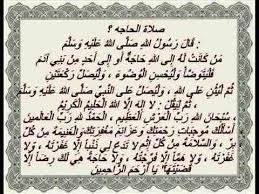 صلاة الحاجه ؟
قَالَ رَسُولُ اللهِ صَلَّى اللهُ عَلَيْهِ وَسَلَّمَ :
مَنْ كَانَتْ لَهُ إِلَى اللهِ حَاجَةٌ أَوْ إِلَى أَحَدٍ مِنْ بَنِي آدَمَ
فَلْيَتَوَضَّأْ وَلْيُحْسِنِ الْوُضُوءَ ، وَلْيُصَلِّ رَكْعَتَيْنِ
ثُمَّ لْيُثْنِ عَلَى اللهِ ، وَلْيُصَلِّ عَلَى النَّبِيِّ صَلَّى اللهُ عَلَيْهِ وَسَلَّمَ
، ثُمَّ لْيَقُلْ : لا إِلَهَ إِلا اللهُ الْحَلِيمُ الْكَرِيمُ
سُبْحَانَ اللهِ رَبِّ الْعَرْشِ الْعَظِيمِ ، الْحَمْدُ للهِ رَبِّ الْعَالَمِينَ ،
أَسْأَلُكَ مُوجِبَاتِ رَحْمَتِكَ وَعَزَائِمَ مَغْفِرَتِكَ وَالْغَنِيمَةَ مِنْ كُلِّ
بِرٍّ ، وَالسَّلامَةَ مِنْ كُلِّ إِثْمٍ لا تَدَعْ لِي ذَنْبًا إِلا غَفَرْتَهُ
، وَلا هَمًّا إِلا فَرَّجْتَهُ ، وَلا حَاجَةً هِيَ لَكَ رِضًا إِلا
قَضَيْتَهَا يَا أَرْحَمَ الرَّاحِمِينَ